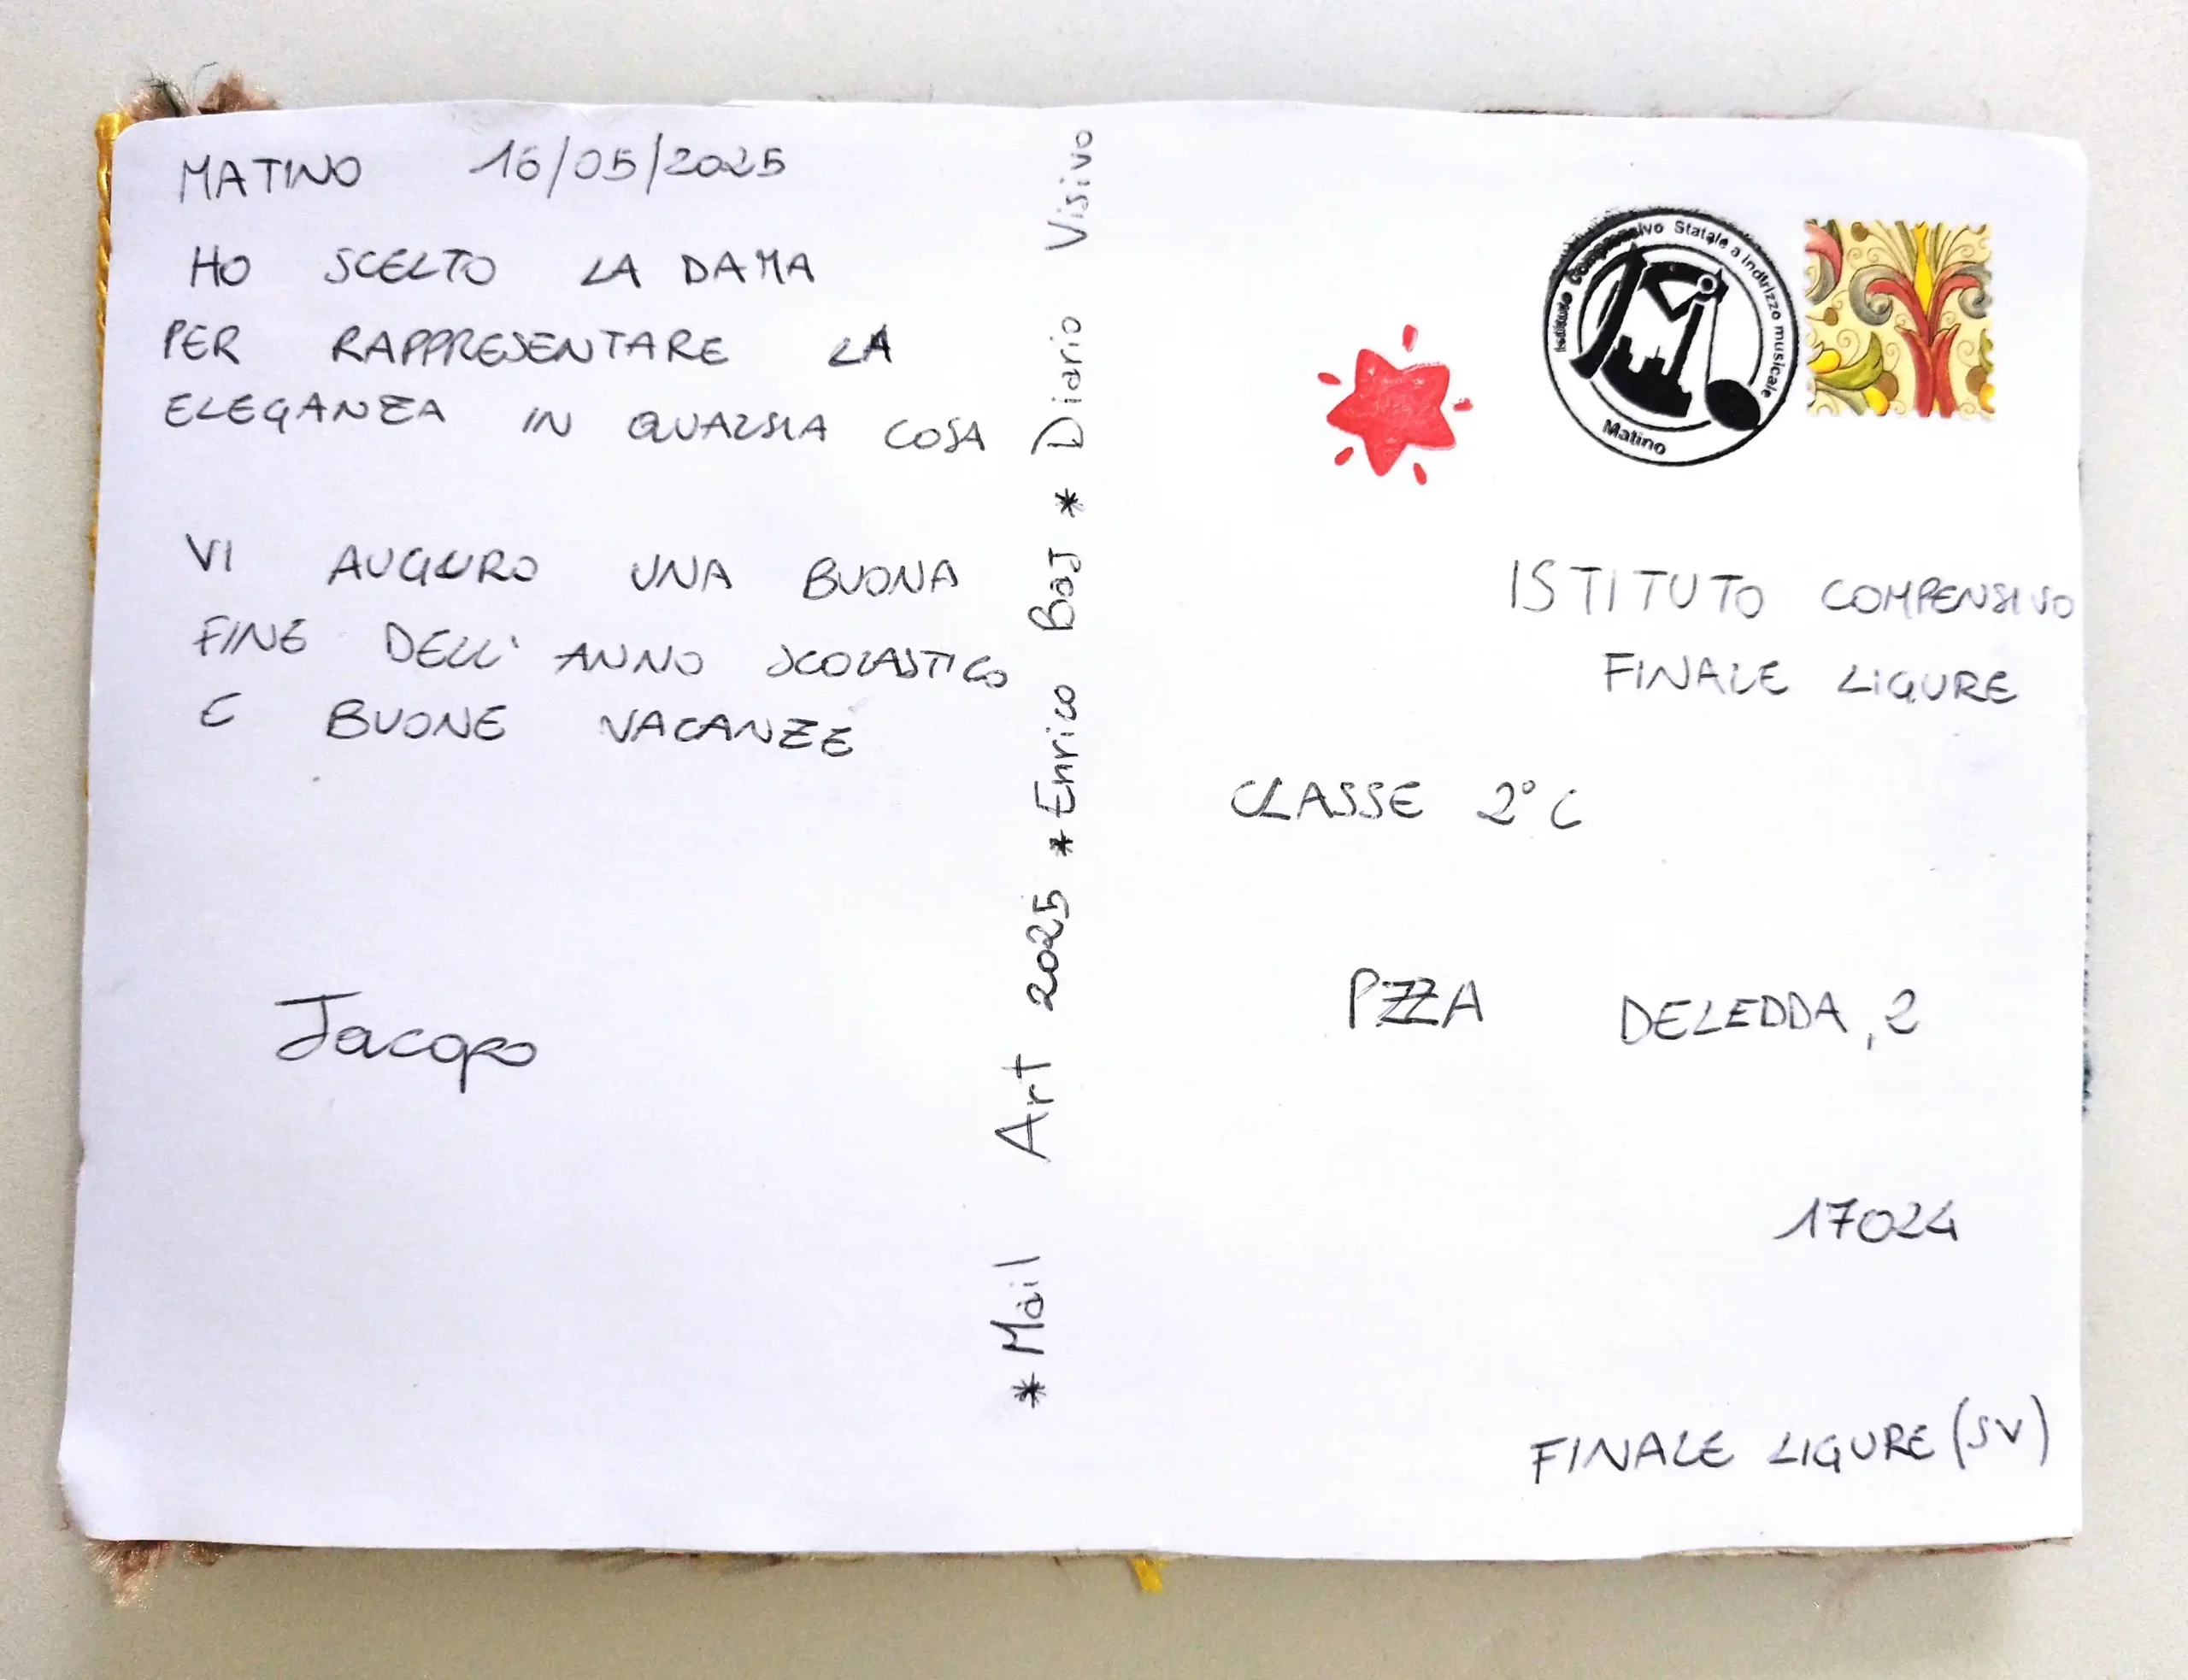 MATINO 16/05/2025
HO SCELTO LA DAMA
PER RAPPRESENTARE LA
ELEGANZA IN QUALSIA COSA
VI AUGURO UNA BUONA
FINE DELL'ANNO SCOLASTICO
E BUONE VACANZE
Jacopo
* Mail Art 2025 * Enrico Baj * Diario Visivo
Istituto Comprensivo Statale a indirizzo musicale
Matino
ISTITUTO COMPENSIVO
FINALE LIGURE
CLASSE 2° C
PZZA DELEDDA, 2
17024
FINALE LIGURE (SV)